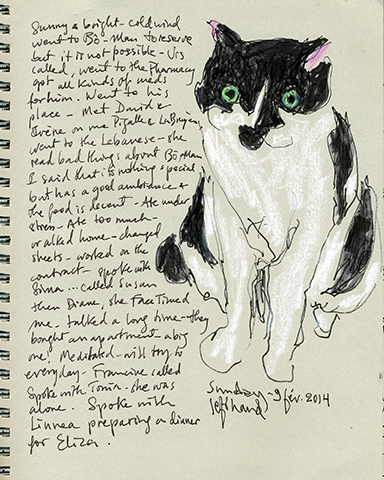 Sunny & bright - cold wind
went to Bō-Man to reserve
but it is not possible - Urs
called, went to the Pharmacy
got all kinds of meds
for him. Went to his
place - Met David &
Irène on rue Pigalle & La Bruyère
went to the Lebanese - she
read bad things about Bō Man
I said that its nothing special
but has a good ambiance &
the food is decent - Ate under
stress - Ate too much -
walked home - changed
sheets - worked on the
contract - Spoke with
... called Susan
then Diane, she FaceTimed
me. talked a long time - they
bought an apartment - a big
one. Meditated - will try to
everyday - Francine called
Spoke with Tonia - she was
alone. Spoke with
Linnea preparing a dinner
for Eliza.
Sunday - 9 fév. 2014
left hand